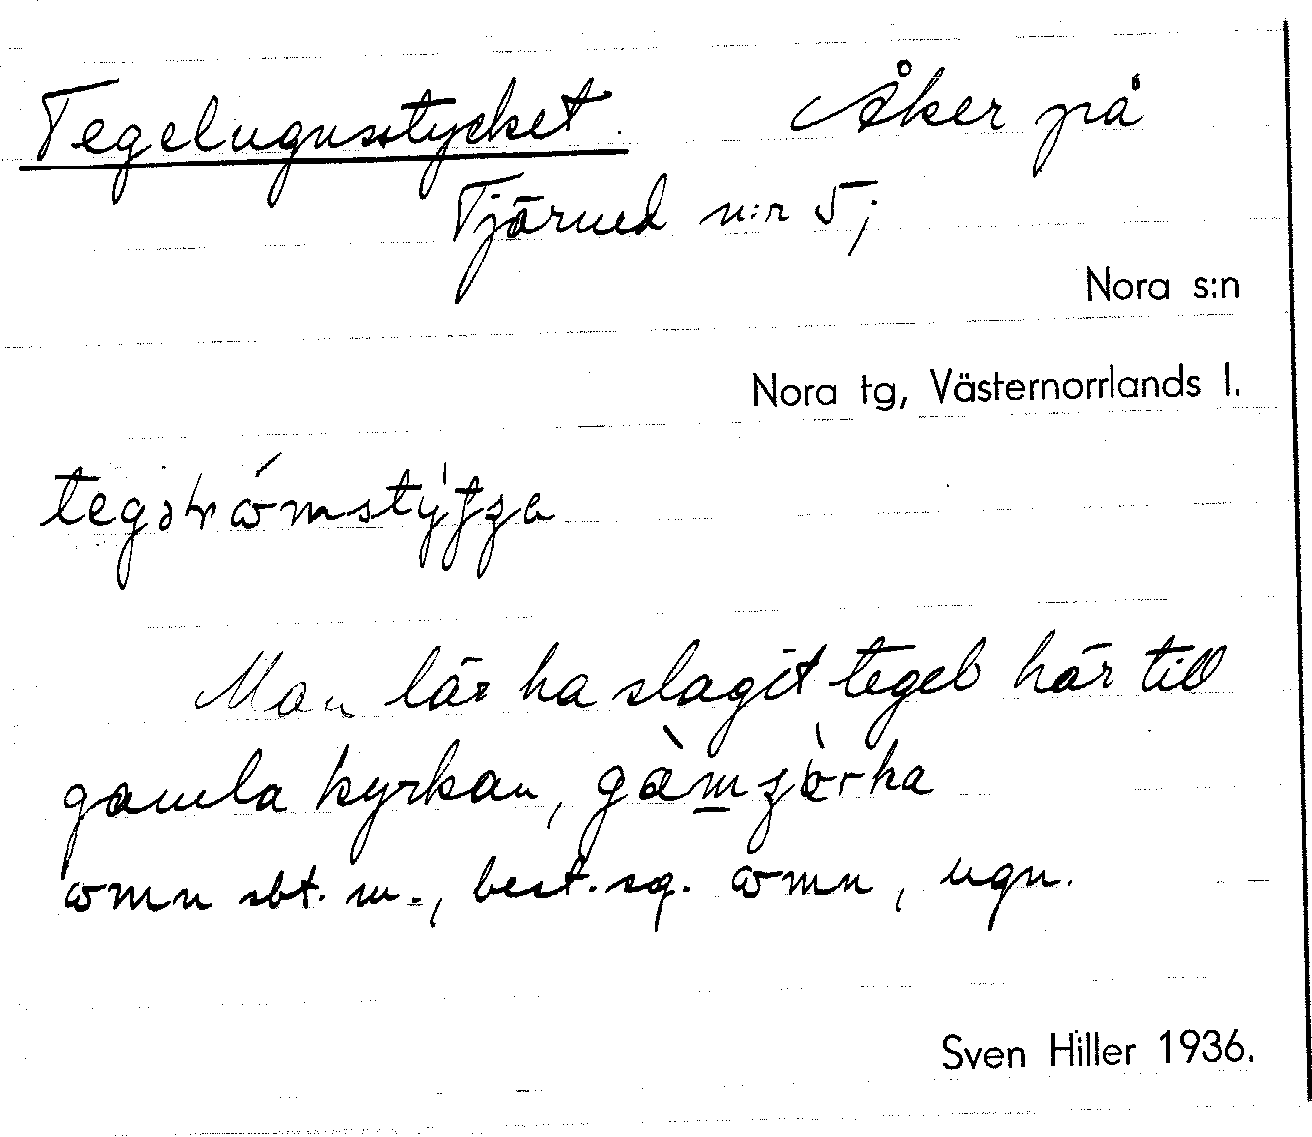 Tegelugnsstycket. Åker på
Tjärned n:r 5;
Nora s:n
Nora tg, Västernorrlands l.
Man lär ha slagit tegel här till
gamla kyrkan,
ωmn sbt. m., best. sg. ωmn, ugn.
Sven Hiller 1936.